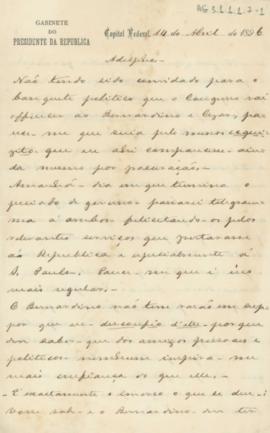 AG 3.1.1.1.2-1
GABINETE
DO
PRESIDENTE DA REPUBLICA
Capital Federal, 14 de Abril de 1896
Não tendo sido convidado para o
banquete politico que o Congresso vai
offerecer ao Bernardino e Cezar, pare-
ce-me que seria pelo menos exqui-
zito, que eu ali comparecesse ain-
da mesmo por procuração.
Amanhã - dia em que termina o
periodo de governo passarei telegram-
ma á ambos felicitando-os pelos
relevantes serviços que prestaram
á Republica e especialmente á
S. Paulo. Parece-me que é isso
mais regular.
O Bernardino não tem razão em sup-
por que eu desconfio d'elle, porque
deve saber que dos amigos pessoaes e
politicos nenhum inspira-me
mais confiança do que elle.
É exactamente o inverso o que se de-